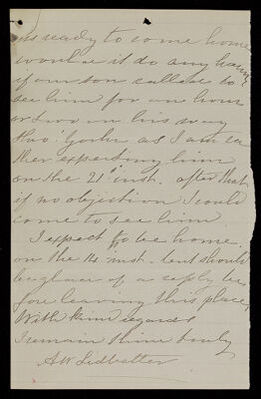 is ready to come home
would it do any harm
if our son called to
see him for an hour
or two on his way
thro' York as I am ra
ther expecting him
on the 21st inst. after that
if no objection I could
come to see him
I expect to be home
on the 14 inst. but should
be glad of a reply be
fore leaving this place,
With kind regards
I remain thine truly
A W Ledbetter